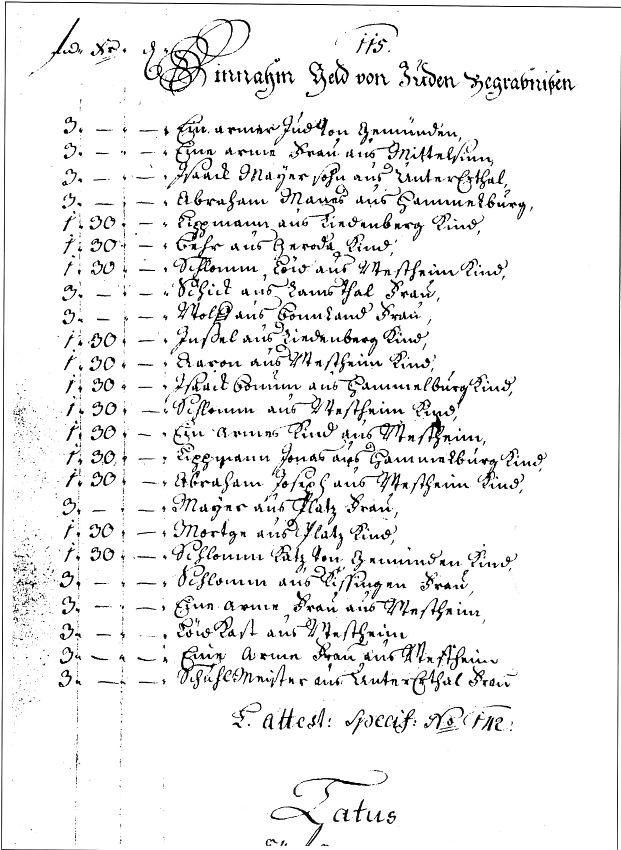 115.
fl. Xr. d.
Einnahm Geld von Juden Begräbnißen
3. — . — . Ein armer Jud von Gemünden,
3. — . — . Eine arme Frau aus Mittelsinn,
3. — . — . Isaack Mayer sohn aus UnterErthal,
3. — . — . Abraham Manes aus Hammelburg,
1. 30. — . Lippmann aus Riedenberg Kind,
1. 30. — . Behr aus Geroda Kind,
1. 30. — . Schlomm Löw aus Westheim Kind,
3. — . — . Schick aus Ramsthal Frau,
3. — . — . Wolff aus Bonnland Frau,
1. 30. — . aus Riedenberg Kind,
1. 30. — . Aaron aus Westheim Kind,
1. 30. — . Isaack aus Hammelburg Kind,
1. 30. — . Schlomm aus Westheim Kind,
1. 30. — . Ein Armes Kind aus Westheim,
1. 30. — . Lippmann Jonas aus Hammelburg Kind,
1. 30. — . Abraham Joseph aus Westheim Kind,
3. — . — . Mayer aus Platz Frau,
1. 30. — . Mortge aus Platz Kind,
1. 30. — . Schlomm Katz von Gemünden Kind,
3. — . — . Schlomm aus Kissingen Frau,
3. — . — . Eine Arme Frau aus Westheim,
3. — . — . aus Westheim
3. — . — . Eine Arme Frau aus Westheim
3. — . — . SchuhlMeister aus UnterErthal Frau
L. attest: Specif: No 142:
Latus